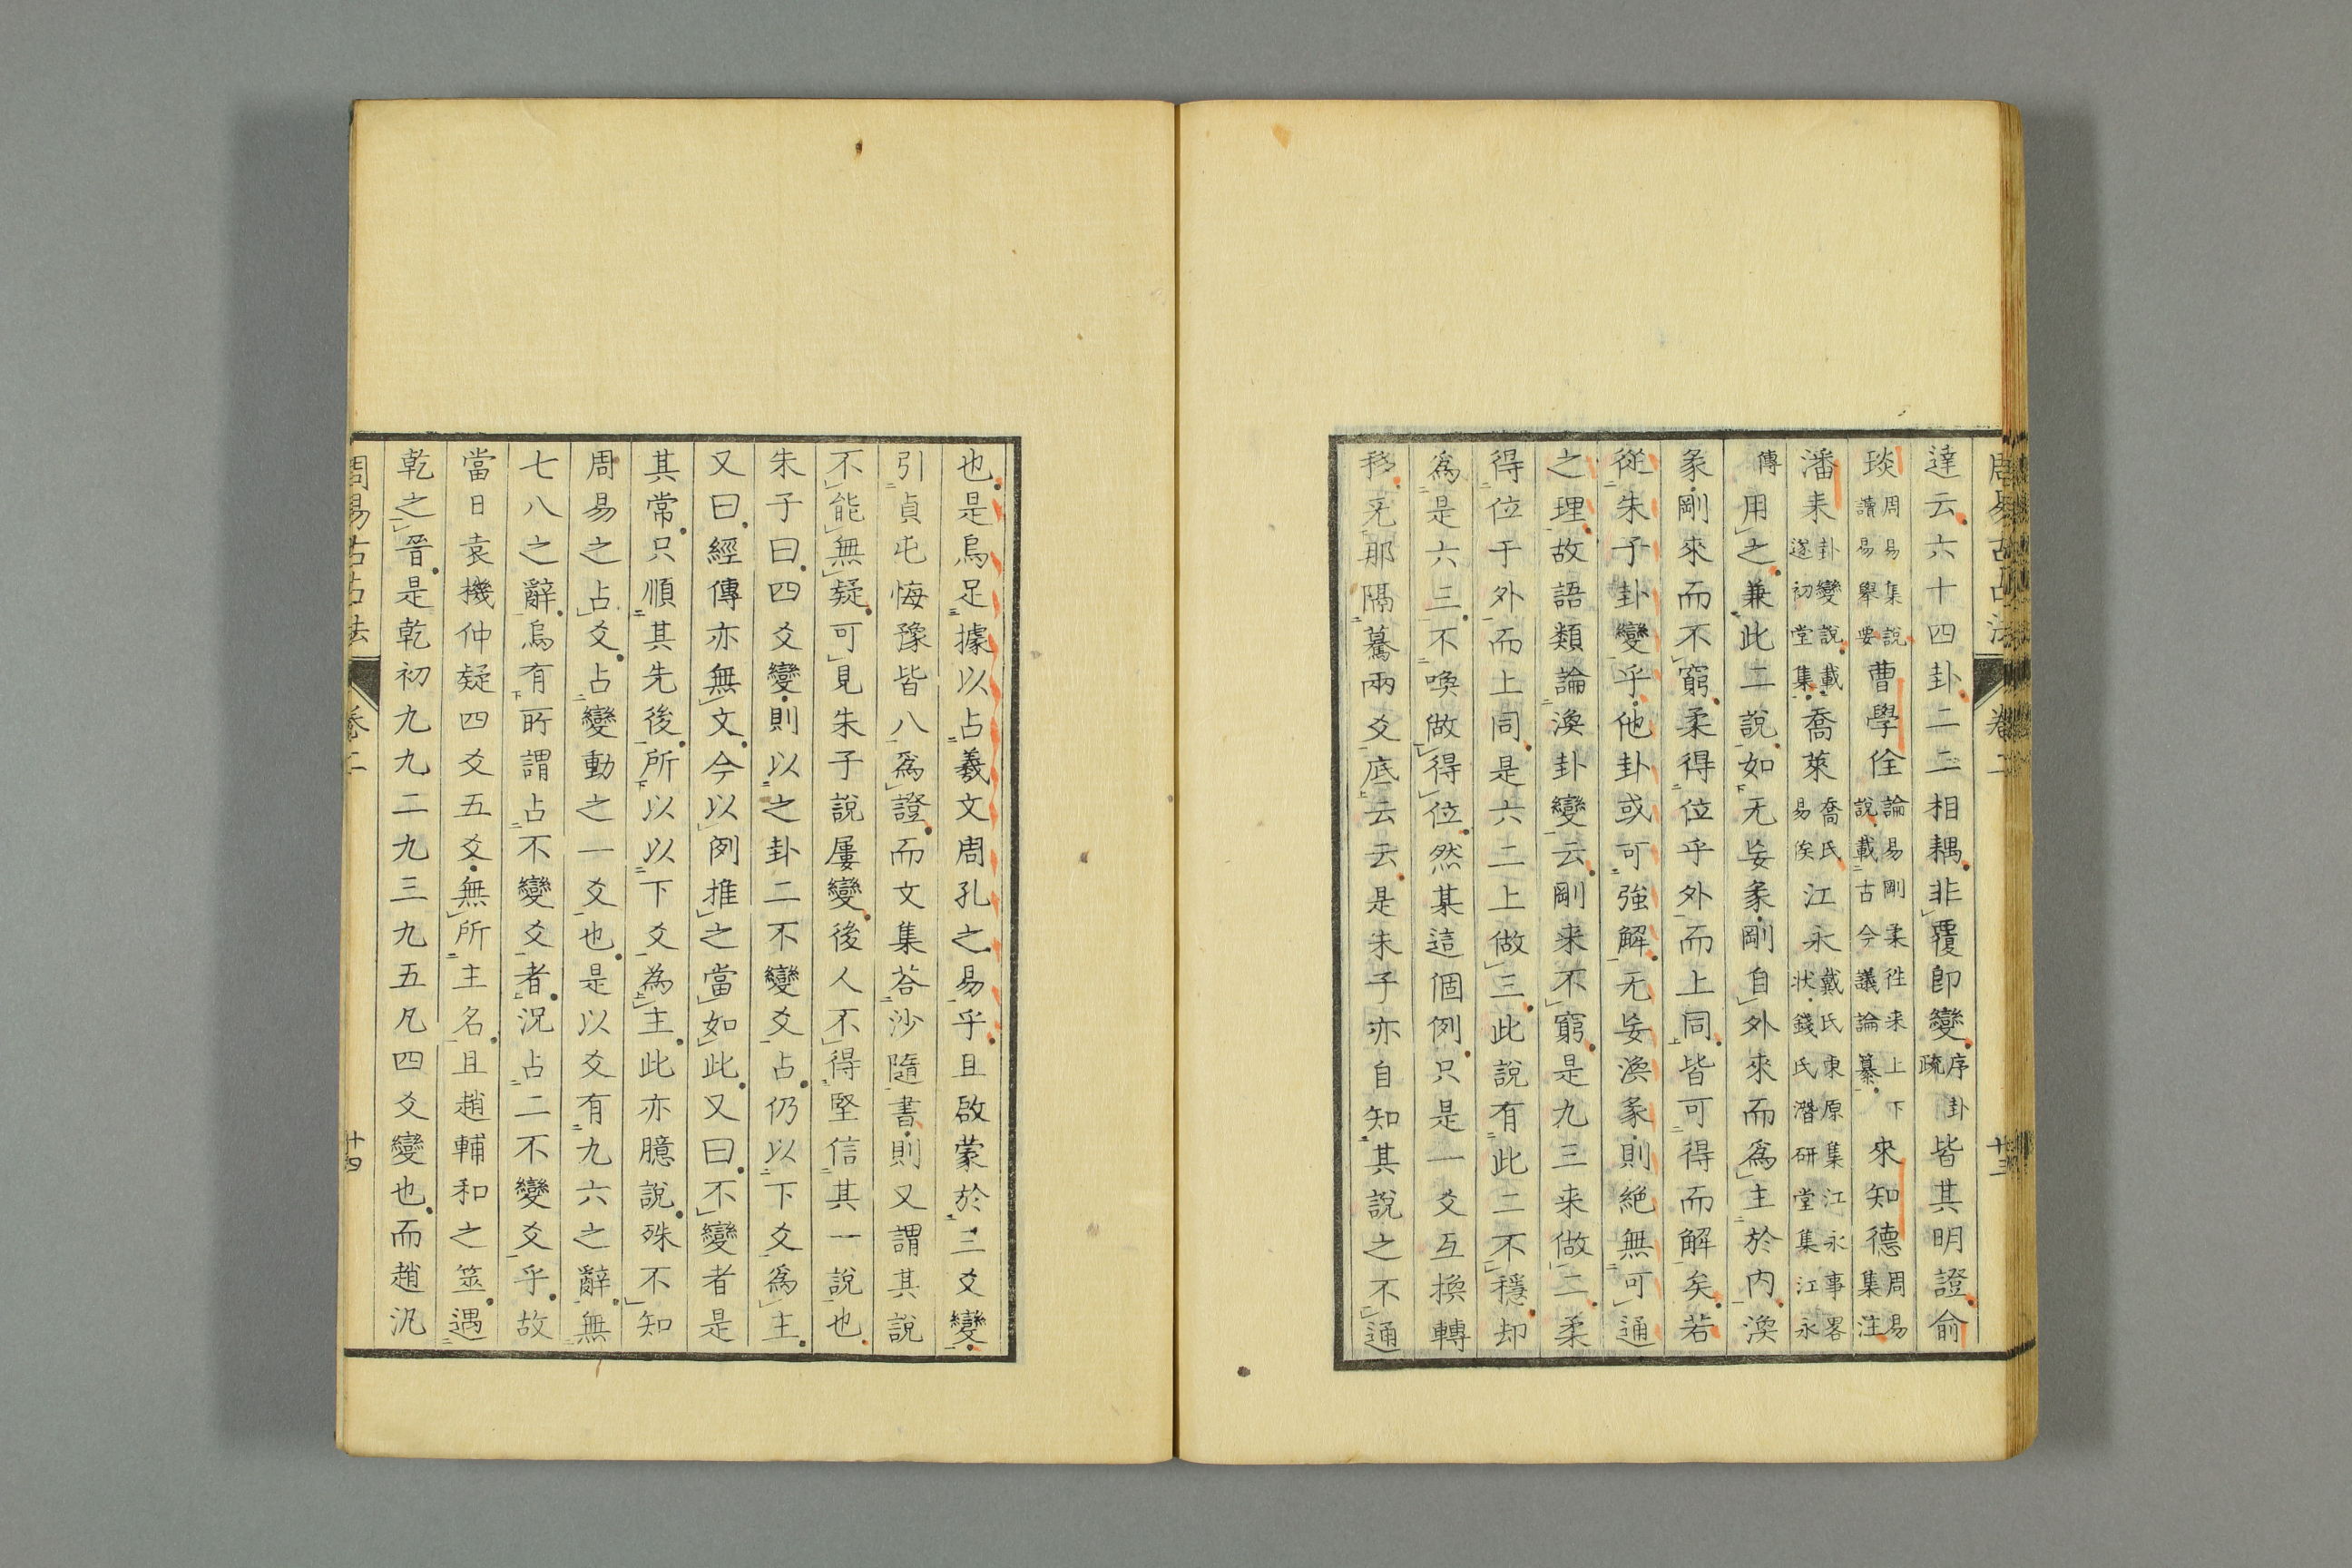 周易古占法 卷二 十三
達云六十四卦二二相耦非覆卽變序卦疏皆其明證俞
琰周易集說讀易舉要曹學佺論易剛柔徃来上下說載古今議論纂來知德周易集注
潘耒卦變說載遂初堂集喬萊喬氏易俟江永戴氏東原集江永事畧状錢氏潛研堂集江永
傳用之兼此二說如无妄彖剛自外來而爲主於内渙
彖剛來而不窮柔得位乎外而上同皆可得而解矣若
從朱子卦變乎他卦或可強解无妄渙彖則絕無可通
之理故語類論渙卦變云剛来不窮是九三来做二柔
得位于外而上同是六二上做三此說有此二不穩却
爲是六三不喚做得位然某這個例只是一爻互換轉
移无那隔驀兩爻底云云是朱子亦自知其說之不通
也是烏足據以占羲文周孔之易乎且啟蒙於三爻變
引貞屯悔豫皆八爲證而文集荅沙隨書則又謂其說
不能無疑可見朱子說屢變後人不得堅信其一說也
朱子曰四爻變則以之卦二不變爻占仍以下爻爲主
又曰經傳亦無文今以例推之當如此又曰不變者是
其常只順其先後所以以下爻為主此亦臆說殊不知
周易之占占爻占變動之一爻也是以爻有九六之辭無
七八之辭烏有所謂占不變爻者況占二不變爻乎故
當日袁機仲疑四爻五爻無所主名且趙輔和之筮遇
乾之晉是乾初九九二九三九五凡四爻變也而趙汎
周易古占法 卷二 十四